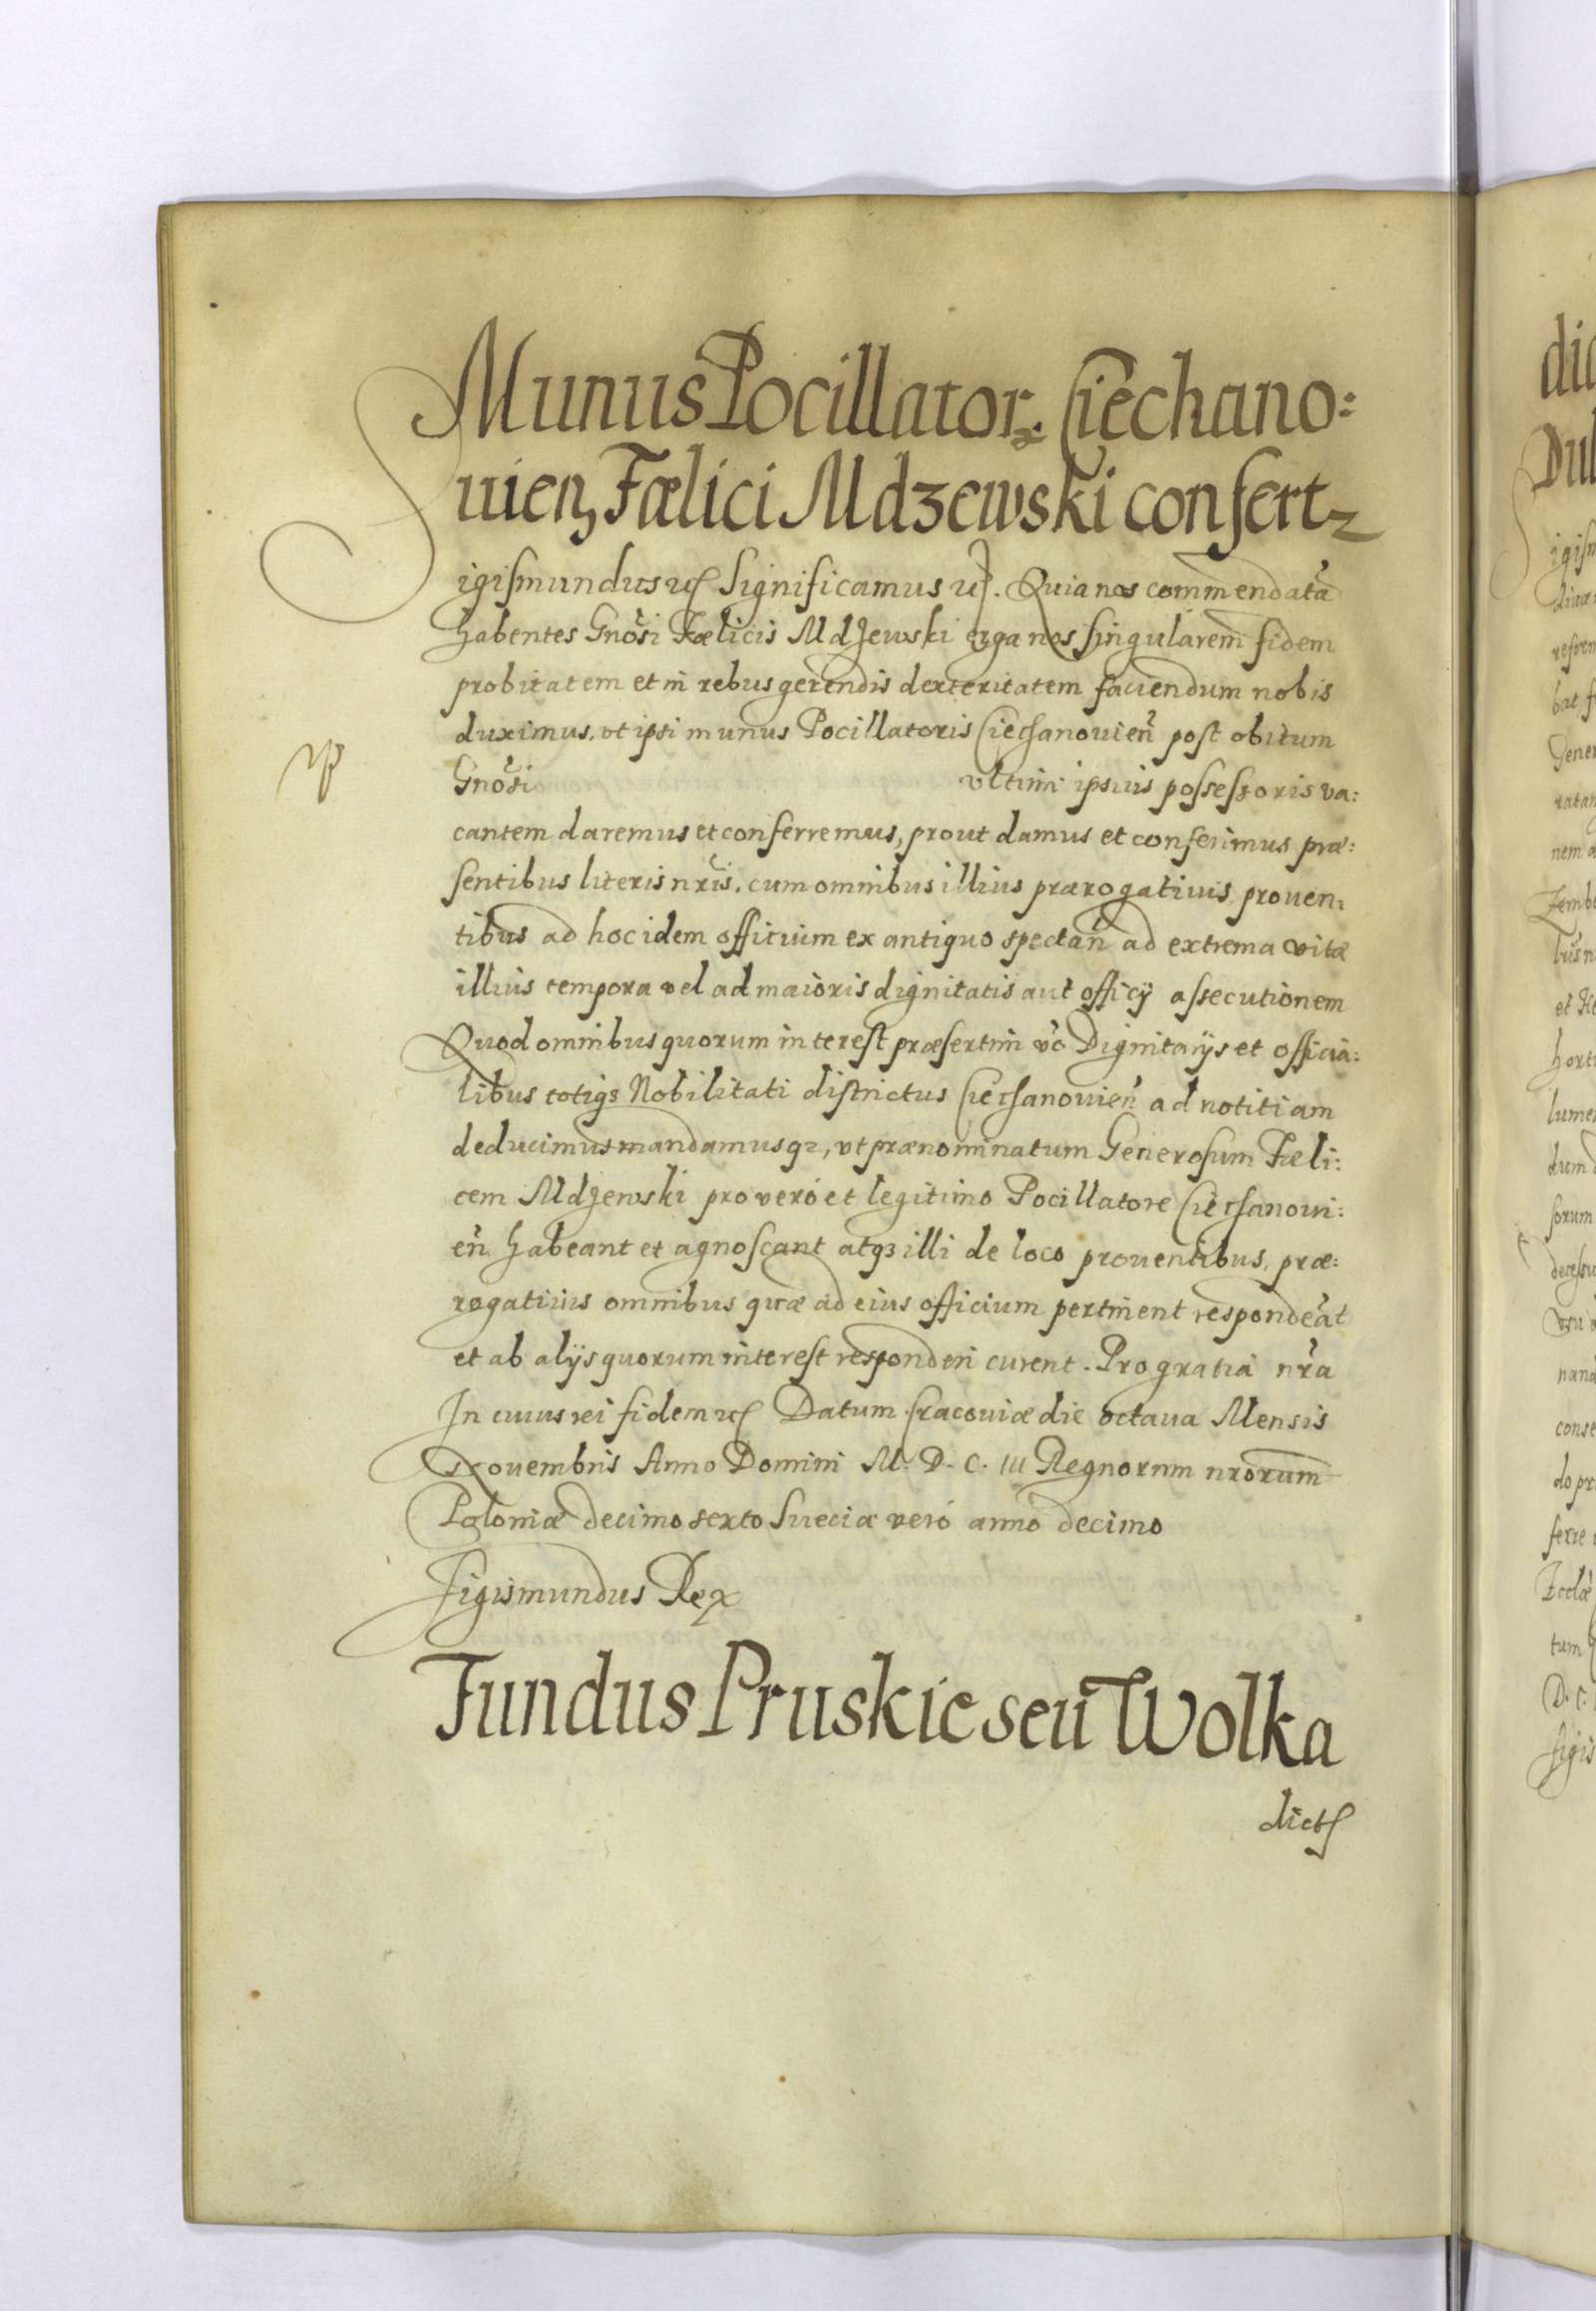 Munus Pocillator. Ciechano:
uien, Fælici Mdzewski confert
Sigismundus etc Significamus etc. Quia nos commendatã
habentes Gnõsi Fælicis Mdzewski erga nos singularem fidem
probitatem et in rebus gerendis dexteritatem faciendum nobis
duximus, vt ipsi munus Pocillatoris Ciechanouieñ post obitum
Gnõsi vltimi ipsius possessoris va:
cantem daremus et conferremus, prout damus et conferimus præ:
sentibus literis nr̃is, cum omnibus illius prærogatiuis prouen:
tibus ad hoc idem officium ex antiquo spectañ ad extrema vitæ
illius tempora vel ad maioris dignitatis aut officij assecutionem
Quod omnibus quorum interest præsertim vo Dignitarijs et officia:
libus totiqz Nobilitati districtus Ciechanouieñ ad notitiam
deducimus mandamusqz, vt prænominatum Generosum Fæli:
cem Mdzewski pro veró et legitimo Pocillatore Ciechanoui:
eñ habeant et agnoscant atqz illi de loco prouentibus, præ:
rogatiuis omnibus quæ ad eius officium pertinent respondeãt
et ab alijs quorum interest responderi curent. Pro gratia nr̃a
In cuius rei fidem etc Datum Cracouiæ die octaua Mensis
Nouembris Anno Domini M. D. C. III Regnorum nrorum
Poloniæ decimo sexto Sueciæ veró anno decimo
Sigismundus Rex
Fundus Pruskie seu Wolka
dict